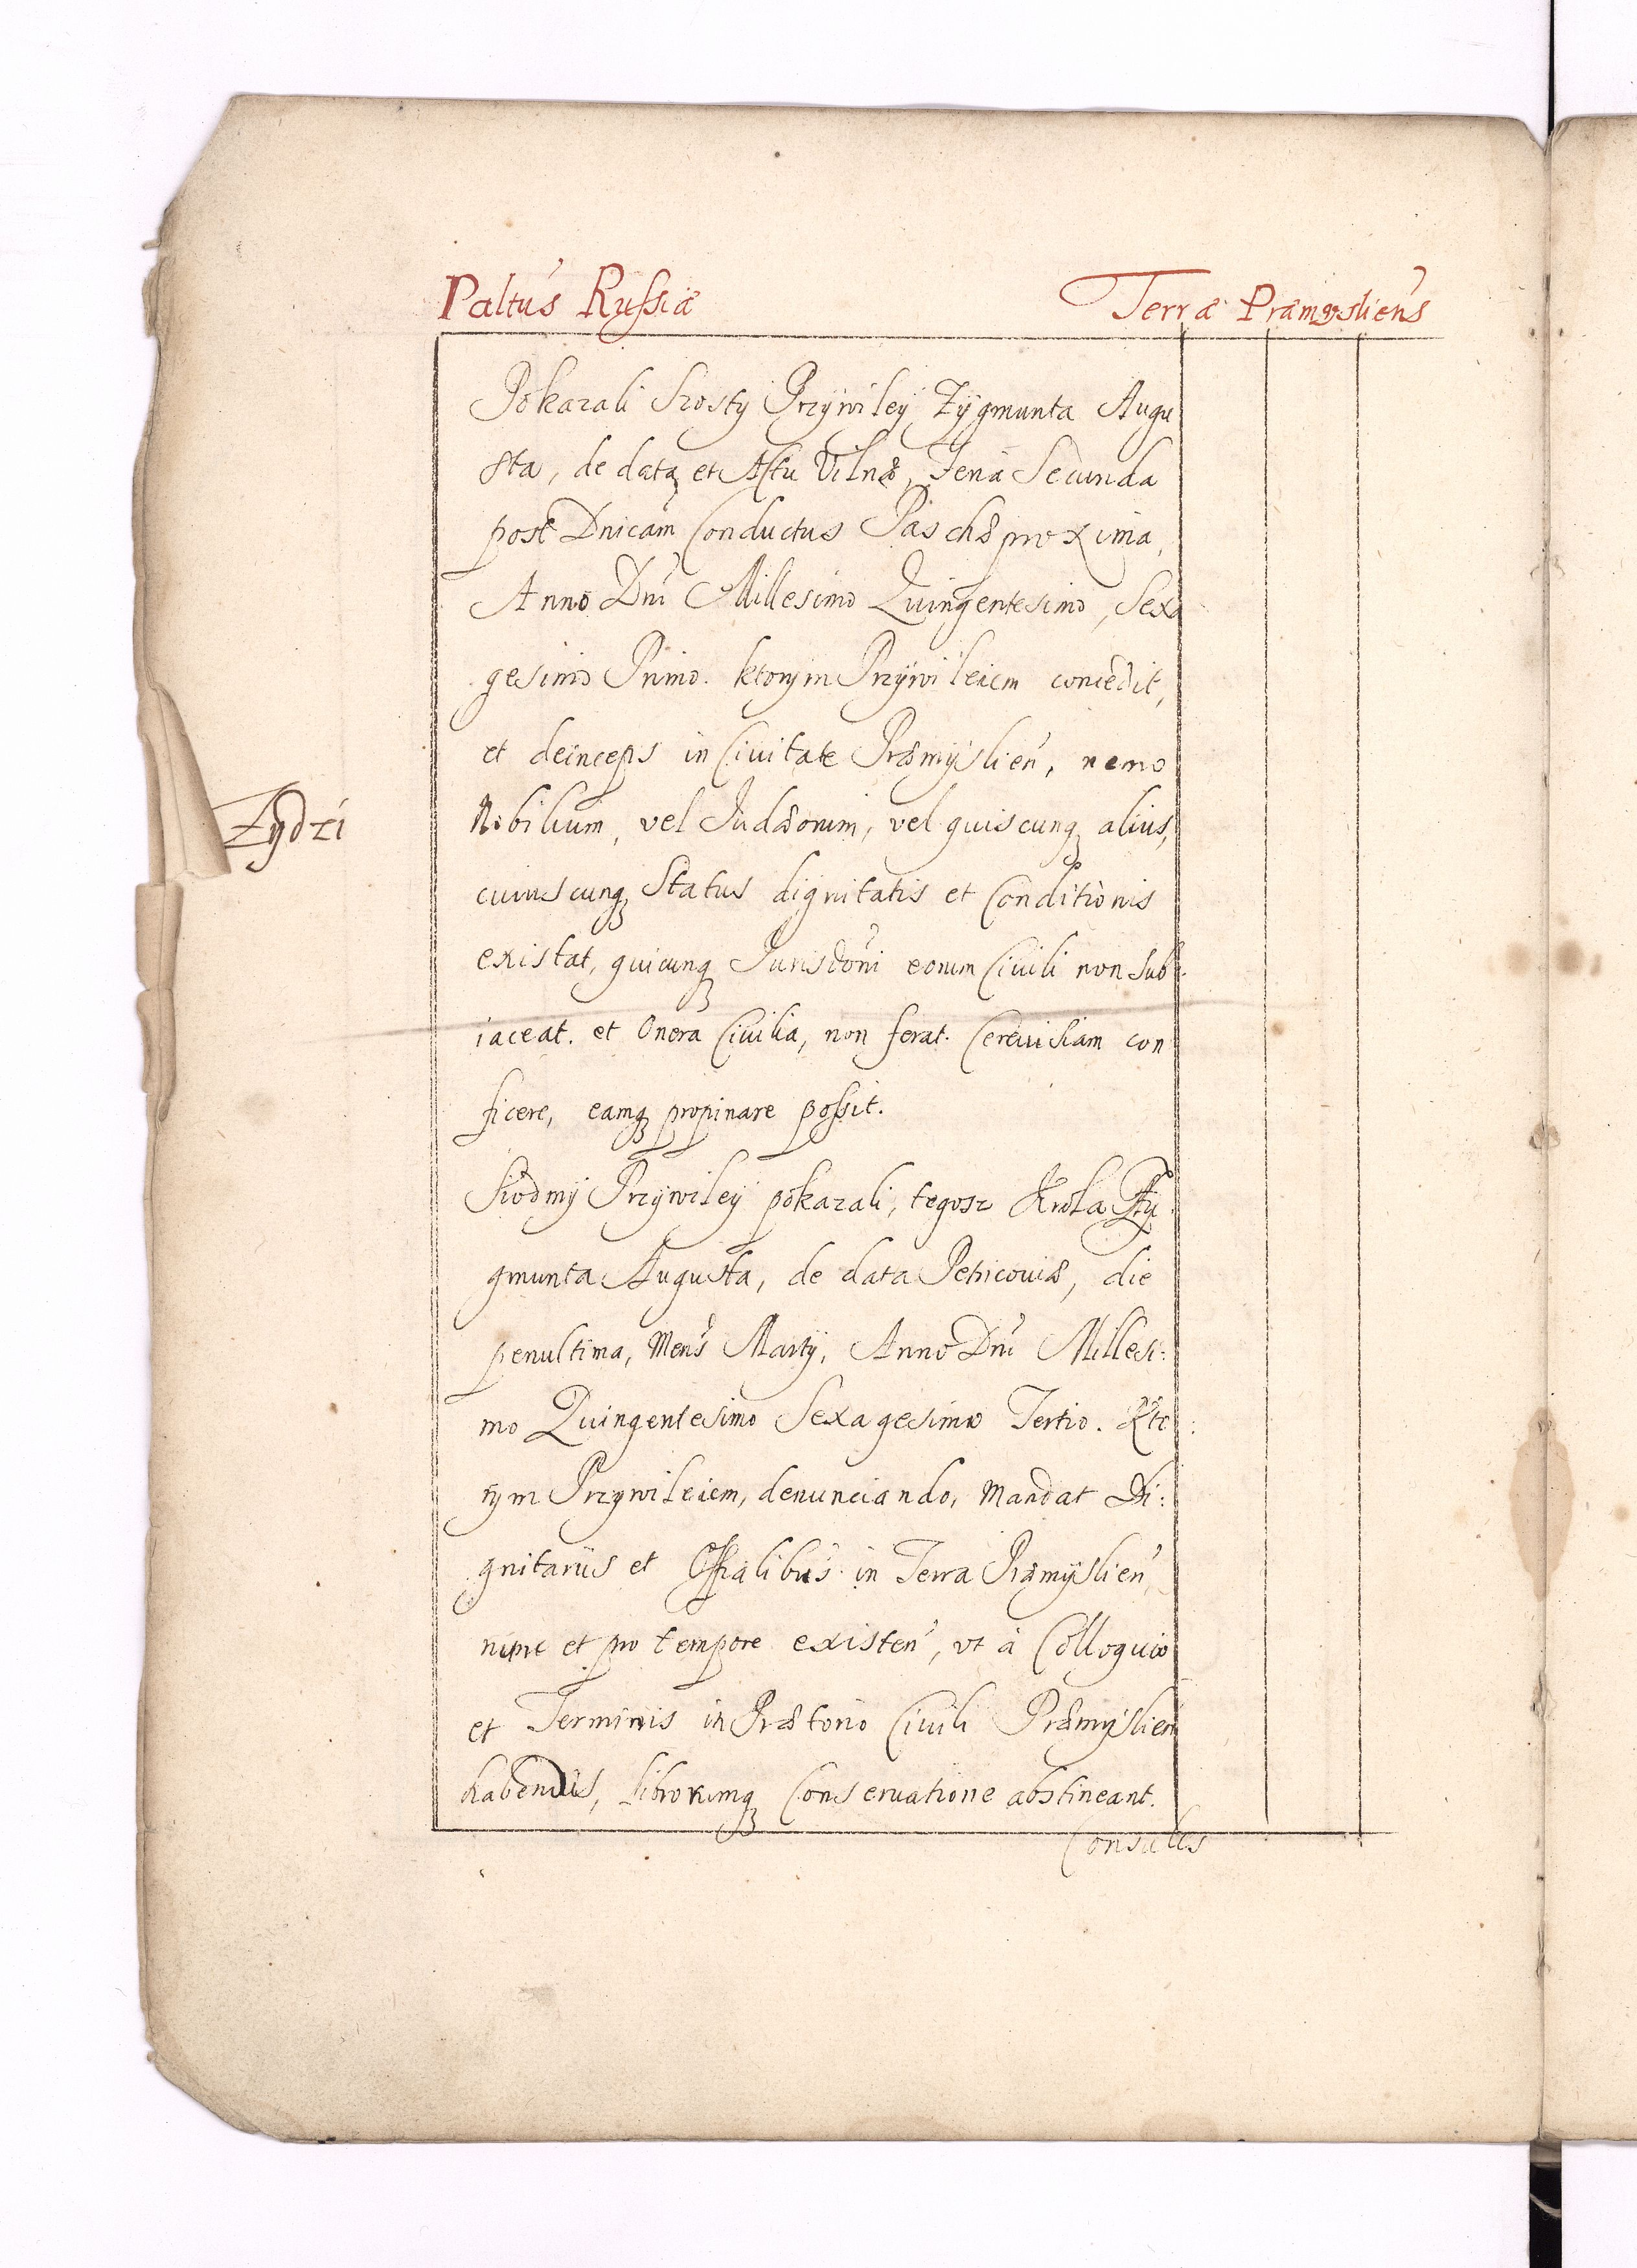 Paltus Russiæ
Terræ Præmysliens
Pokazali Szosty Przywiley Zygmunta Augu
sta, de data et Actu Vilnæ, Feria Secunda
post Dnicam Conductus Paschæ proxima,
Anno Dni Millesimo Quingentesimo, Sexa
gesimo Primo. ktorym Przywileiem concedit,
et deinceps in Civitate Præmyslien, nemo
Nobilium, vel Judæorum, vel quiscunq alius,
Zydzi
cuiuscunq Status dignitatis et Conditionis
existat, quicunq Jurisdoni eorum Civili non sub:
iaceat. et Onera Civilia, non ferat. Cerevisiam con
ficere, eamq propinare possit.
Siodmy Przywiley pokazali, tegosz Krola Zy
gmunta Augusta, de data Petricoviæ, die
penultima, Mens Marty, Anno Dni Millesi:
mo Quingentesimo Sexagesimo Tertio. Kto:
rym Przywileiem, denunciando, Mandat Di:
gnitariis et Offialibus in Terra Præmyslien,
nunc et pro tempore existen, vt à Colloquio
et Terminis in Prætorio Civili Præmyslien
habendis, librorumq Conservatione abstineant.
Consules